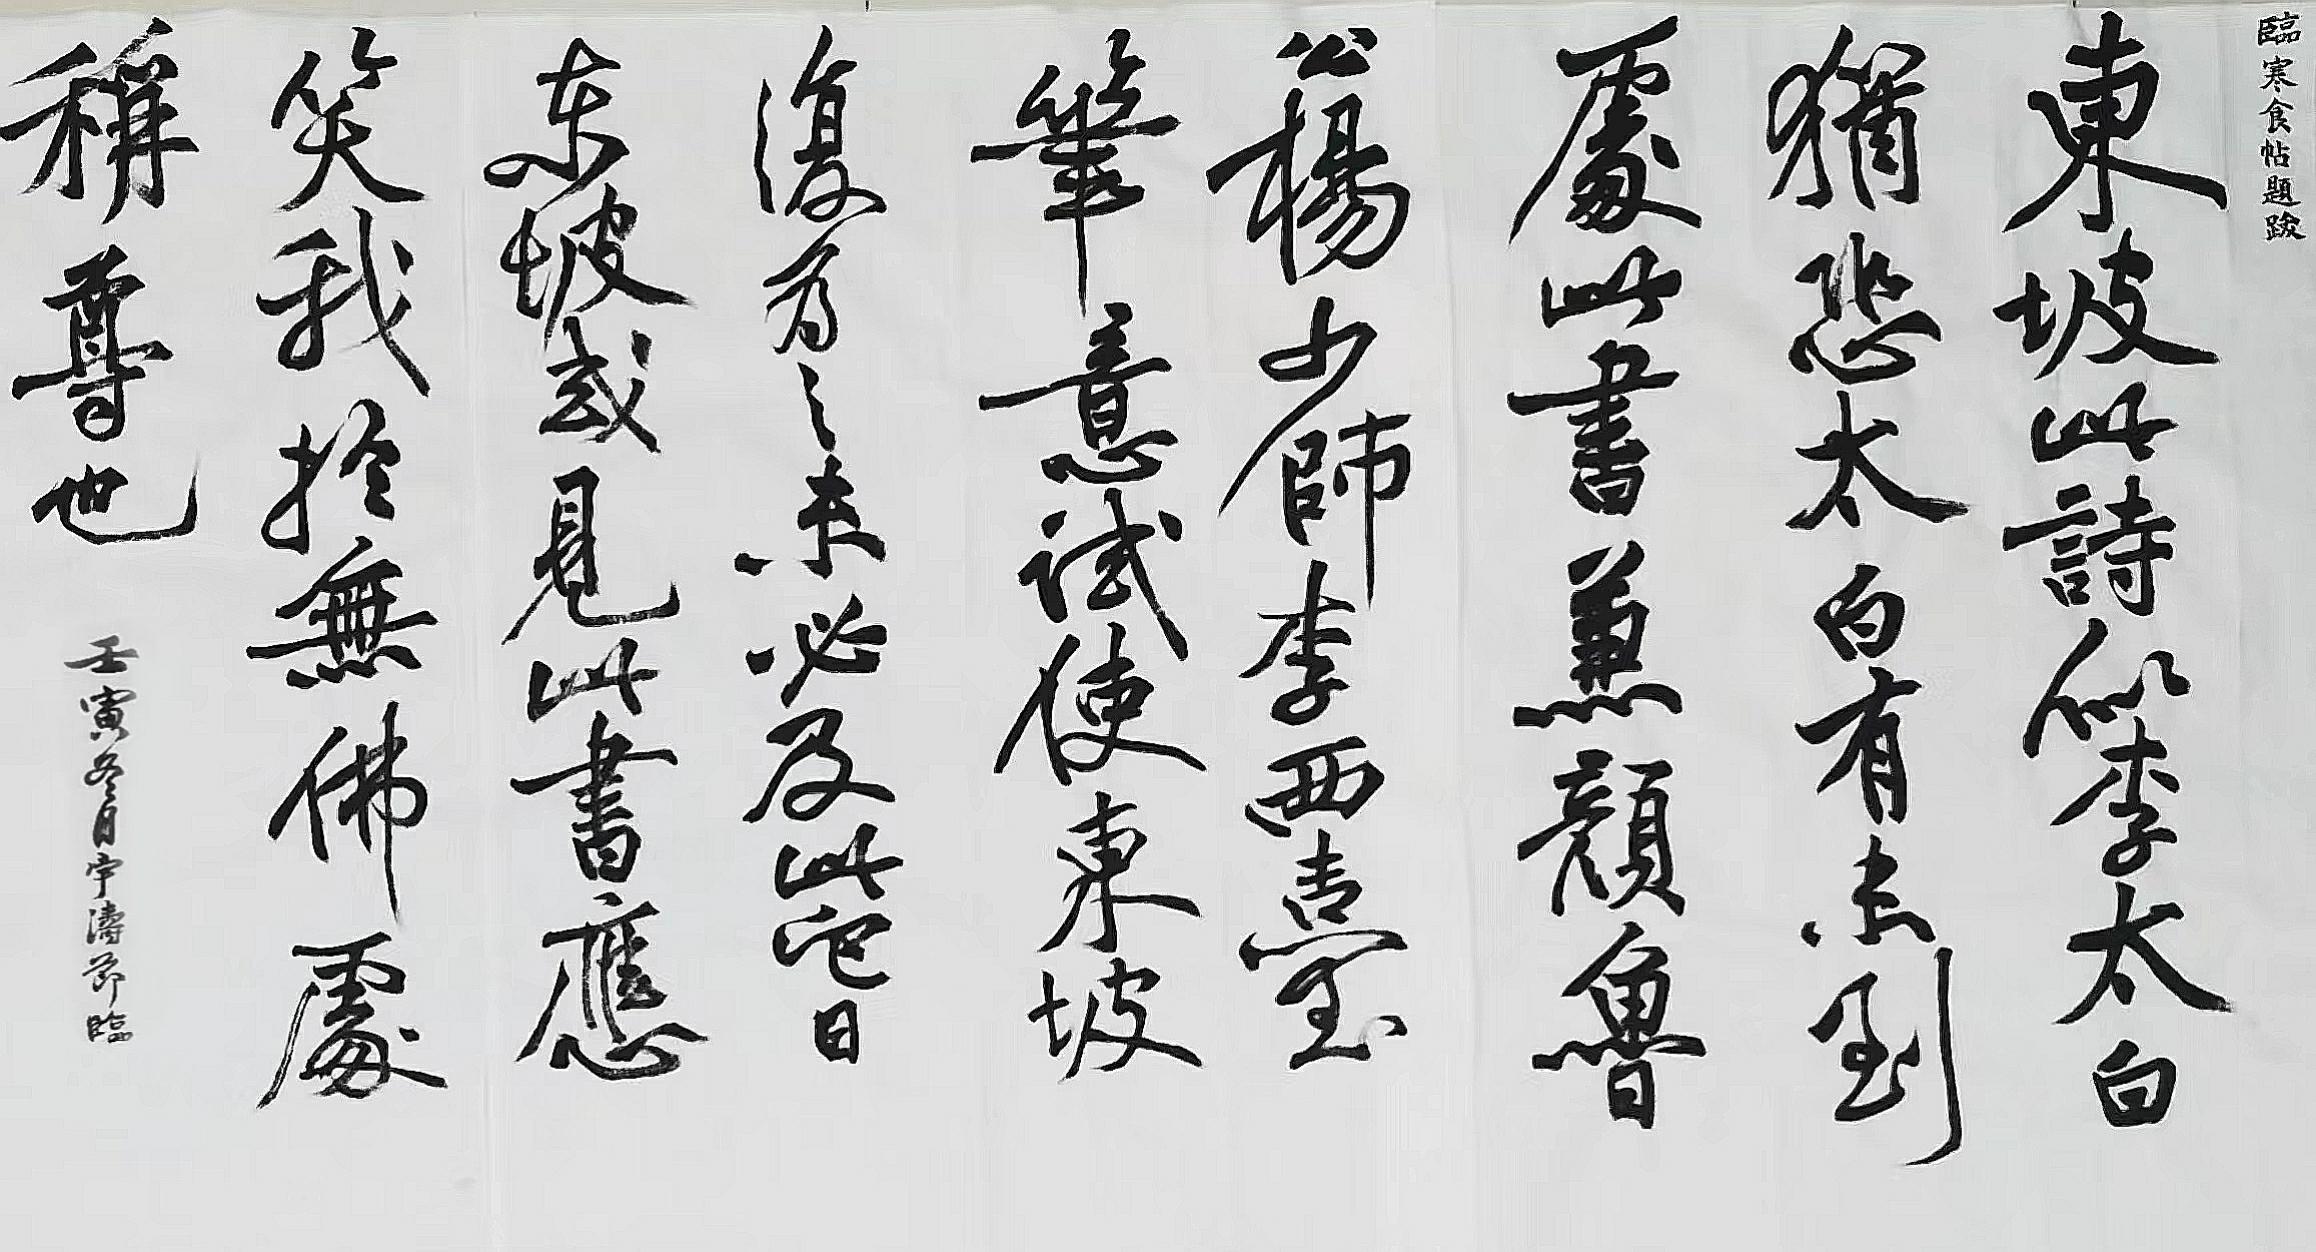 臨寒食帖題跋
東坡此詩似李太白
猶恐太白有未到
處此書兼顏魯
公楊少師李西臺
筆意試使東坡
復為之未必及此它日
东坡或見此書應
笑我於無佛處
稱尊也
壬寅冬月宇濤節臨